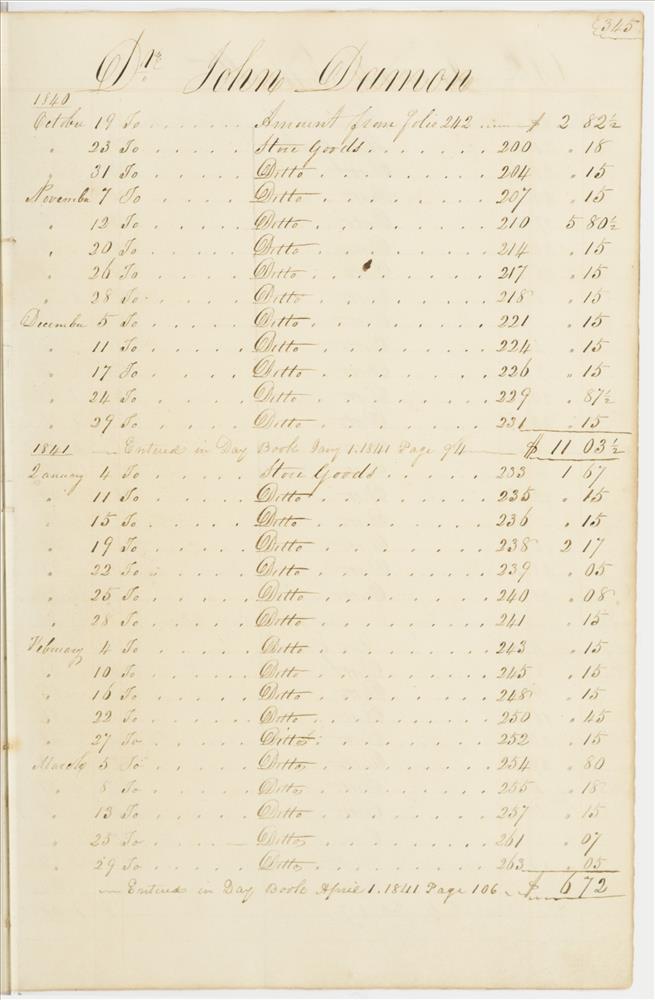 345
Dr. John Damon
1840
October 19 To . . . . . . Amount from folio 242 $ 2 82½
" 23 To . . . . . Store Goods . . . . . . 200 " 18
" 31 To . . . . . Ditto . . . . . . . . 204 " 15
November 7 To . . . . Ditto . . . . . . . . 207 " 15
" 12 To . . . . . Ditto . . . . . . . . 210 5 80½
" 20 To . . . . . Ditto . . . . . . . . 214 " 15
" 26 To . . . . . Ditto . . . . . . . . 217 " 15
" 28 To . . . . . Ditto . . . . . . . . 218 " 15
December 5 To . . . . . Ditto . . . . . . . . 221 " 15
" 11 To . . . . . Ditto . . . . . . . . 224 " 15
" 17 To . . . . . Ditto . . . . . . . . 226 " 15
" 24 To . . . . . Ditto . . . . . . . . 229 " 87½
" 29 To . . . . . Ditto . . . . . . . . 231 " 15
1841 — Entered in Day Book Jany 1. 1841 Page 94 — $ 11 03½
January 4 To . . . . . Store Goods . . . . . 233 1 67
" 11 To . . . . . Ditto . . . . . . . . 235 " 15
" 15 To . . . . . Ditto . . . . . . . . 236 " 15
" 19 To . . . . . Ditto . . . . . . . . 238 2 17
" 22 To . . . . . Ditto . . . . . . . . 239 " 05
" 25 To . . . . . Ditto . . . . . . . . 240 " 08
" 28 To . . . . . Ditto . . . . . . . . 241 " 15
February 4 To . . . . . Ditto . . . . . . . . 243 " 15
" 10 To . . . . . Ditto . . . . . . . . 245 " 15
" 16 To . . . . . Ditto . . . . . . . . 248 " 15
" 22 To . . . . . Ditto . . . . . . . . 250 " 45
" 27 To . . . . . Ditto . . . . . . . . 252 " 15
March 5 To . . . . . Ditto . . . . . . . . 254 " 80
" 8 To . . . . . Ditto . . . . . . . . 255 " 18
" 13 To . . . . . Ditto . . . . . . . . 257 " 15
" 25 To . . . . — Ditto . . . . . . . . 261 " 07
" 29 To . . . . . Ditto . . . . . . . . 263 " 05
— Entered in Day Book April 1. 1841 Page 106 $ 6 72